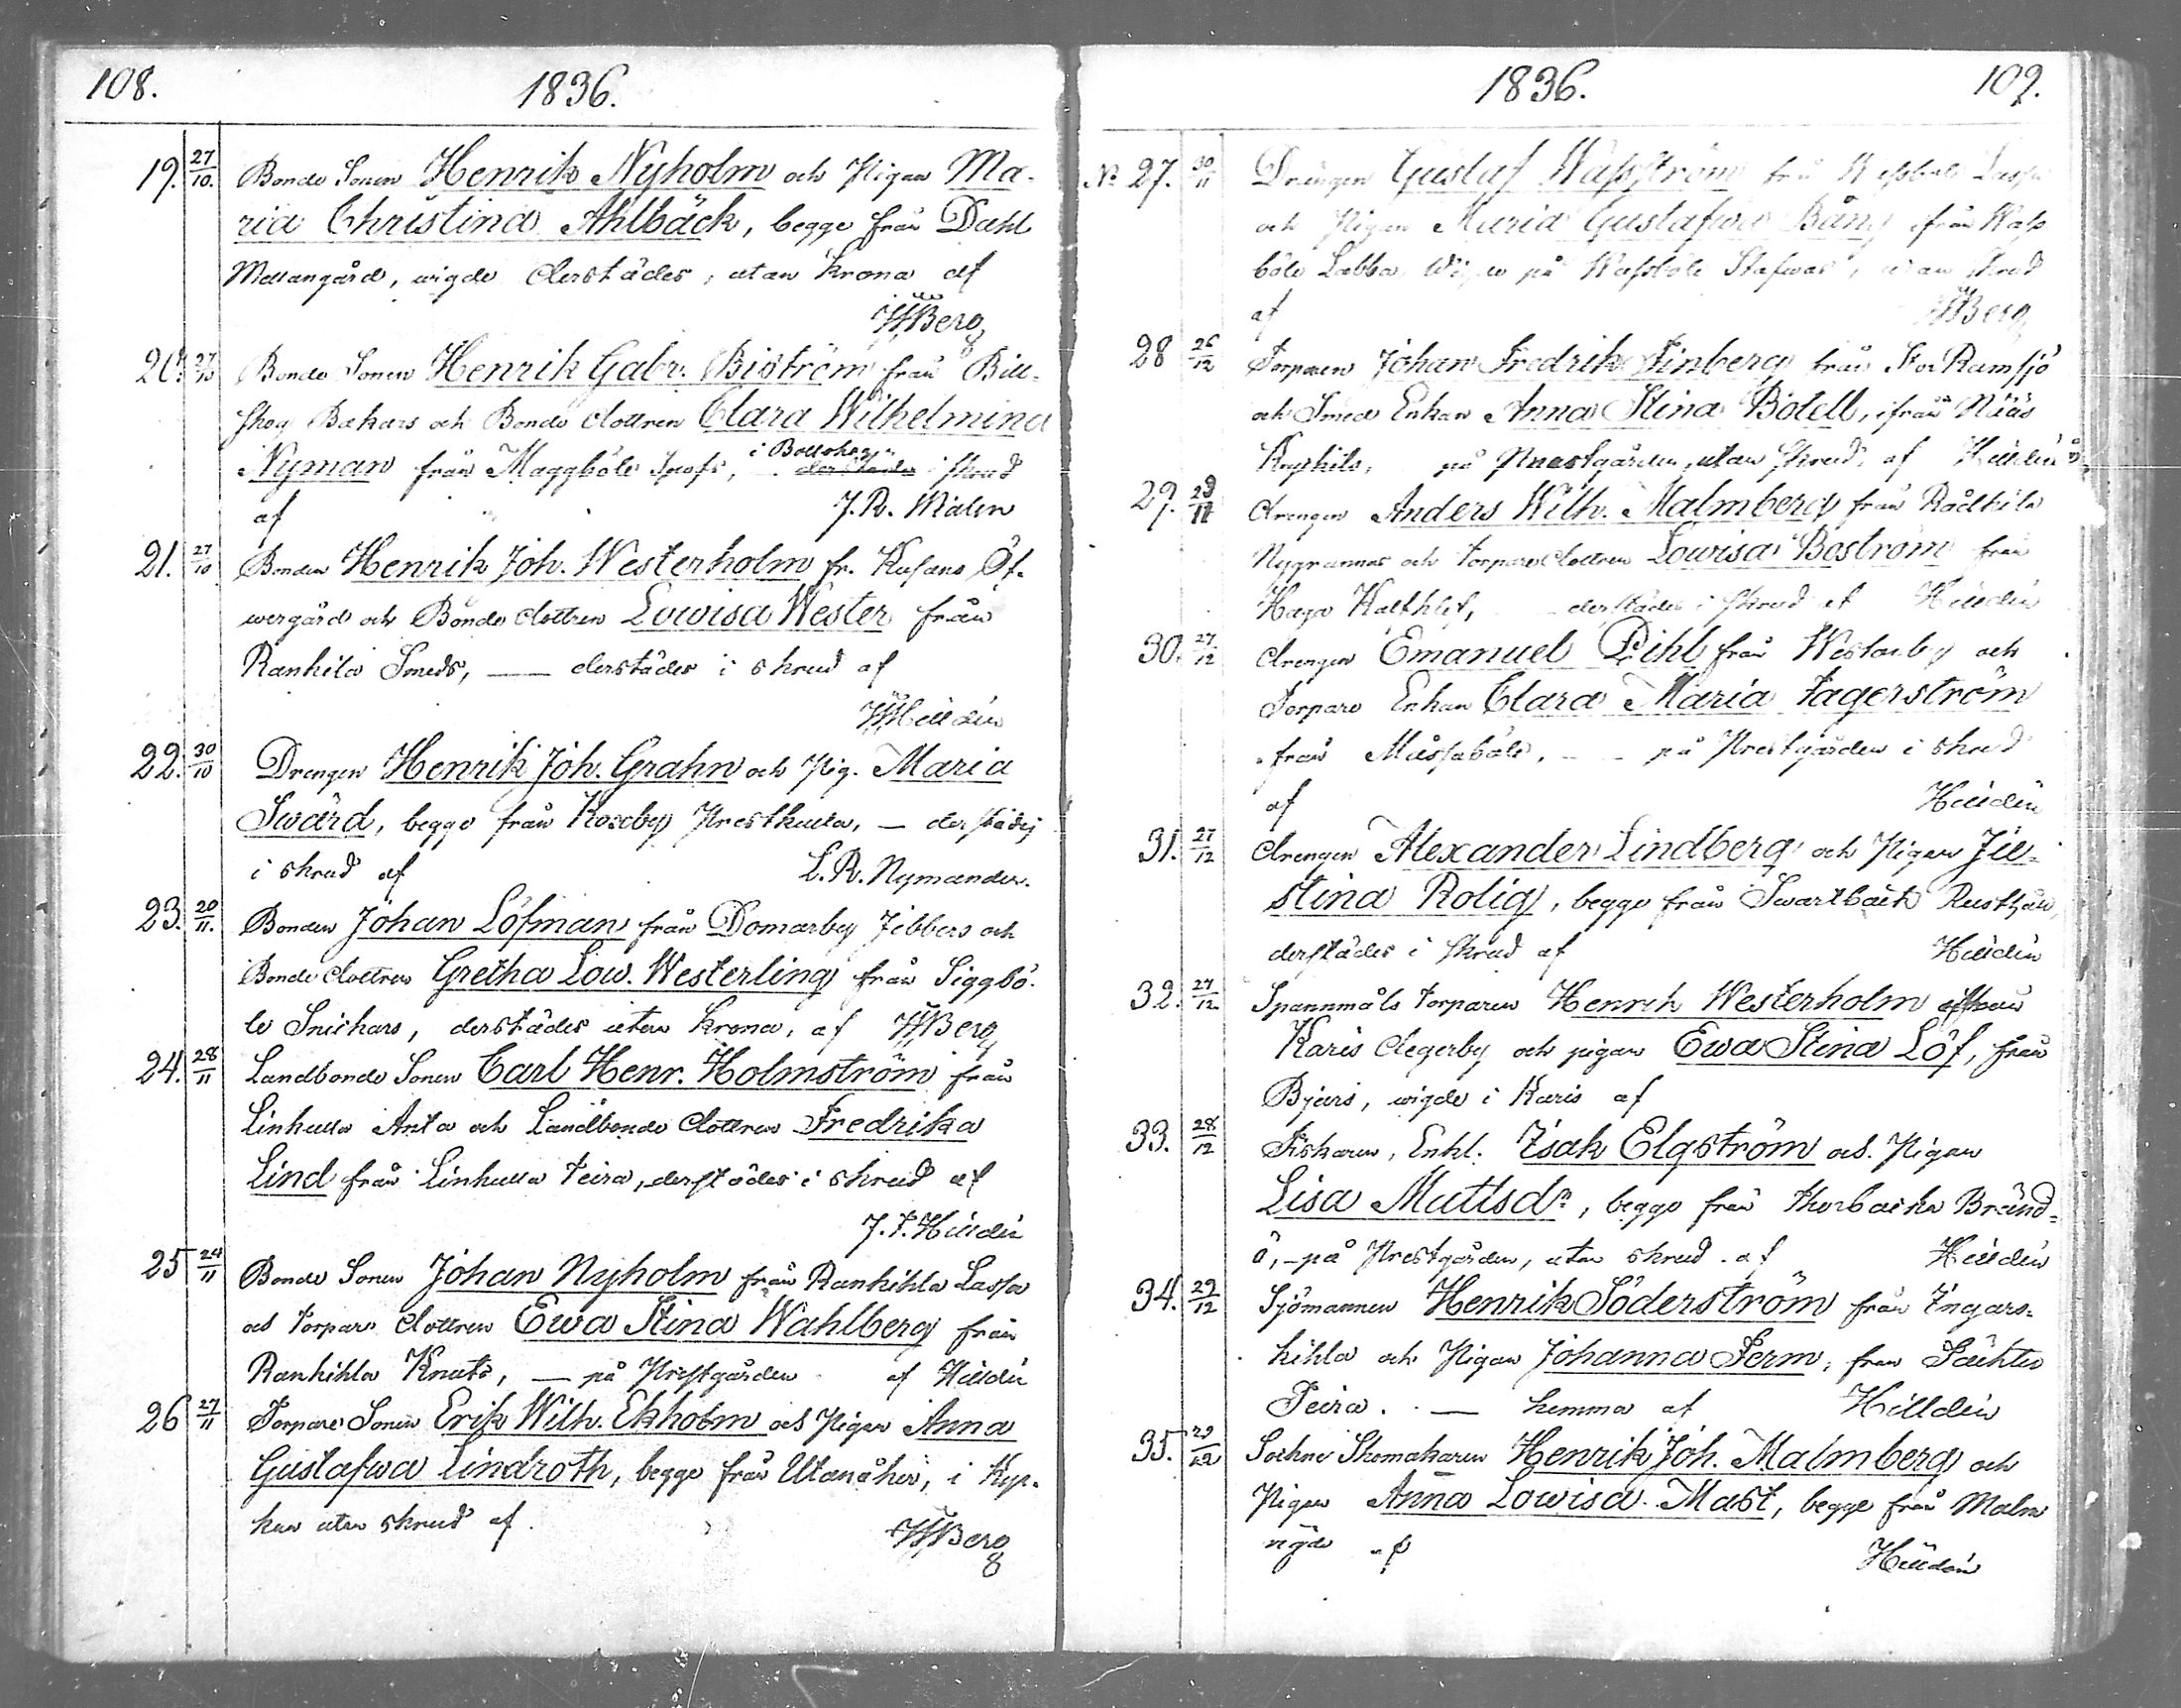 108.
1836.
19. 27/10. Bonde Sonen Henrik Nyholm och Pigan Ma-
ria Christina Ahlbäck, begge från Dahl
Mellangård, wigde derstädes, utan Krona af
Berg
20. 27/10 Bonde Sonen Henrik Gabr. Biström från Bill-
skog Bakars och Bonde dottren Clara Wilhelmina
Nyman från Maggböle, i Bollskog derstädes i skrud
af J. R. Malen
21. 27/10 Bonden Henrik Joh. Westerholm fr. Kusans Öf-
wergård och Bonde dottren Lowisa Wester från
Rankila Smeds, — derstädes i skrud af
Hilldén
22. 30/10 Drengen Henrik Joh. Grahn och Pig. Maria
Swärd, begge från Roseby Prestkulla, — derstädes
i skrud af L. R. Nymander.
23. 20/11. Bonden Johan Löfman från Domarby Jibbers och
Bonde dottren Gretha Low. Westerling från Siggbö-
le Snickars, derstädes utan Krona, af Berg
24. 28/11 Landbonde Sonen Carl Henr. Holmström från
Linkulla Anta och Landbonde dottren Fredrika
Lind från Linkulla Teira, derstädes i skrud af
J. F. Hilldén
25 24/11 Bonde Sonen Johan Nyholm från Rankihla Lassa
och Torpare dottren Ewa Stina Wahlberg från
Rankihla Knuts, — på Prestgården af Hilldén
26 27/11 Torpare Sonen Erik Wilh. Ekholm och Pigan Anna
Gustafwa Lindroth, begge från Utanåker, i Kyr-
kan utan skrud af.
Berg
1836. 109.
No 27. 30/11 Drengen Gustaf Wasström från Wassböle Lassa
och Pigan Maria Gustafwa Bång från Wass
böle Labba, Wigde på Wassböle Stafwas, utan skrud
af Berg
28 26/12 Torparen Johan Fredrik Finberg från Stor Ramsjö
och Smed Enkan Anna Stina Botell, ifrån Nääs
på Prestgården, utan skrud, af Hilldén
29. drengen Anders Wilh. Malmberg från Rådkila
Nygrannas och Torpare dottren Lowisa Boström från
Haga Kalkhlef, derstädes i skrud af Hilldén
30. 27/12 drengen Emanuel Pihl från Westerby och
Torpare Enkan Clara Maria Fagerström
från Mussaböle, — på Prestgården i skrud
af Hilldén
31. 27/12 drengen Alexander Lindberg och Pigan Jul-
stina Rolig, begge från Swartbäck Rusthåll,
derstädes i skrud af Hilldén
32. 27/12 Spannmåls torparen Henrik Westerholm från
Karis degerby och pigan Ewa Stina Löf, från
Bjurs, wigde i Karis af
33. 28/12 Fiskaren, Enkl. Isak Elgström och Pigan
Lisa Mattsdr, begge från Thorbacka Bränd-
ö, – på Prestgården, utan skrud. af Hilldén
34. 29/12 Sjömannen Henrik Söderström från Ingars-
kihla och Pigan Johanna Ferm, från Täckter
Teira. — hemma af Hilldén
35. 29/12 Sockne Skomakaren Henrik Joh. Malmberg och
Pigan Anna Lowisa Mast, begge från Malm
wigde af Hilldén